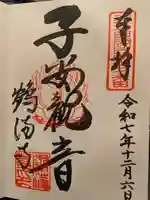 奉拝
令和七年十二月六日
子安観音
鶴満寺